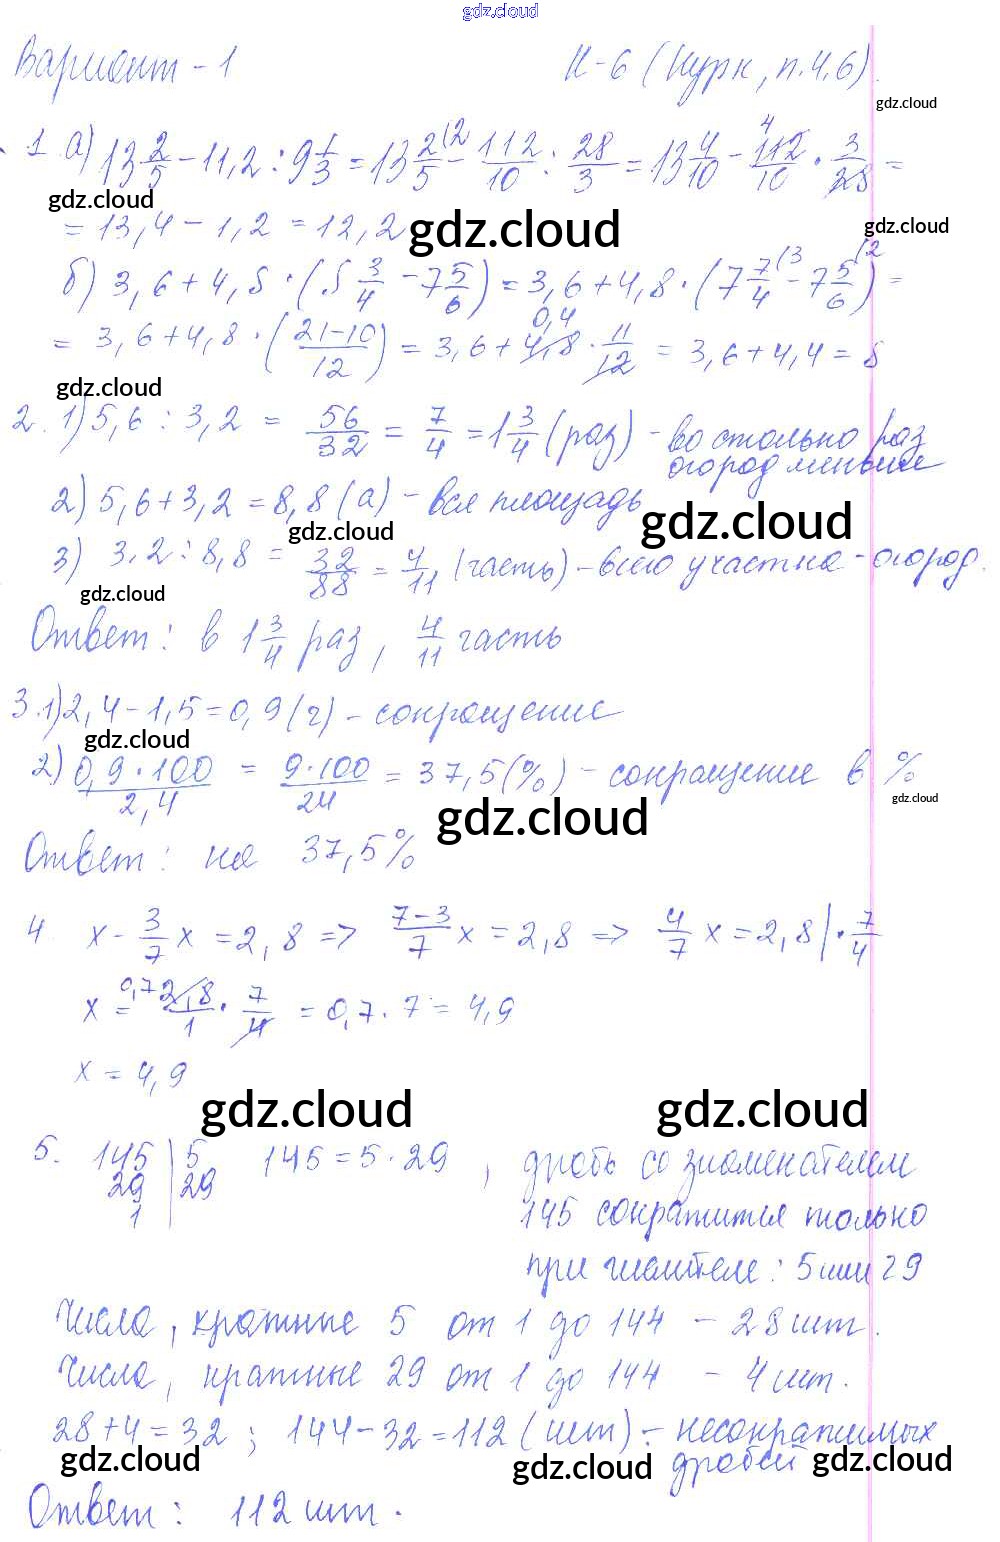 gdz.cloud
Вариант - 1 К-6 (Нурк, п.4,6).
gdz.cloud
1 а) 13 2/5 - 11,2 : 9 1/3 = 13 2/5 (2 - 112/10 : 28/3 = 13 4/10 - 112/10 4 · 3/28 =
gdz.cloud
= 13,4 - 1,2 = 12,2
gdz.cloud gdz.cloud
б) 3,6 + 4,8 · (8 3/4 - 7 5/6) = 3,6 + 4,8 · (7 7/4 (3 - 7 5/6 (2) =
= 3,6 + 4,8 · (21-10/12) = 3,6 + 4,8 0,4 · 11/12 = 3,6 + 4,4 = 8
gdz.cloud
2. 1) 5,6 : 3,2 = 56/32 = 7/4 = 1 3/4 (раз) - во столько раз
огород меньше
2) 5,6 + 3,2 = 8,8 (а) - вся площадь
gdz.cloud gdz.cloud
3) 3,2 : 8,8 = 32/88 = 4/11 (часть) - всего участка - огород.
gdz.cloud
Ответ: в 1 3/4 раз, 4/11 часть
3. 1) 2,4 - 1,5 = 0,9 (г) - сокращение
gdz.cloud
2) 0,9·100/2,4 = 9·100/24 = 37,5 (%) - сокращение в %
gdz.cloud gdz.cloud
Ответ: на 37,5%
4 x - 3/7 x = 2,8 => 7-3/7 x = 2,8 => 4/7 x = 2,8 | · 7/4
x = 0,7 2,8/1 · 7/4 = 0,7 · 7 = 4,9
x = 4,9
gdz.cloud gdz.cloud
5. 145 | 5 145 = 5 · 29 , дробь со знаменателем
29 | 29
1 | 145 сократится только
при числителе: 5 или 29
Числа, кратные 5 от 1 до 144 - 28 шт.
Числа, кратные 29 от 1 до 144 - 4 шт.
28 + 4 = 32 ; 144 - 32 = 112 (шт) - несократимых
дробей
gdz.cloud gdz.cloud gdz.cloud
Ответ: 112 шт.